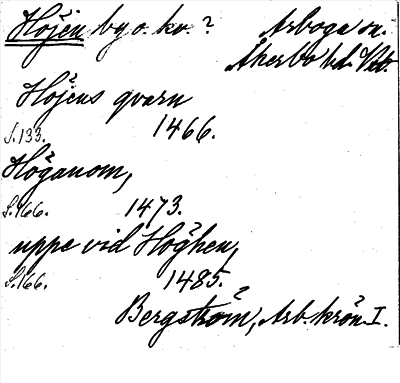 Höjen by o. kv.? Arboga sn.
Åkerbo hd. Vstm.
Höjens qvarn
S. 133. 1466.
Höganom,
S. 166. 1473.
uppe vid Höghen,
S. 166. 1485.
Bergström, Arb. krön. I.